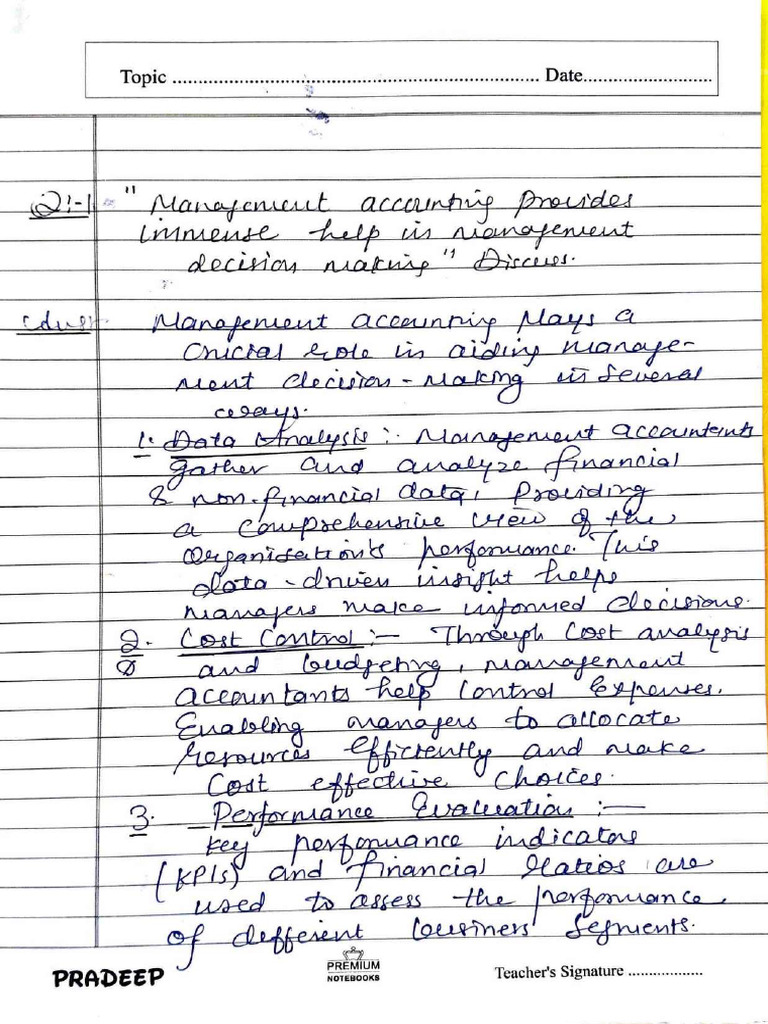 Topic ........................................................................ Date.........................
Q:-1 "Management accounting provides
immense help in management
decision making" Discuss.
Management accounting plays a
crucial role in aiding manage-
ment decision-making in several
ways.
1. Data Analysis :- Management accountants
gather and analyze financial
& non-financial data, providing
a comprehensive view of the
organisation's performance. This
data-driven insight helps
managers make informed decisions.
2. Cost Control :- Through cost analysis
and budgeting, management
accountants help control expenses.
Enabling managers to allocate
resources efficiently and make
cost effective choices.
3. Performance Evaluation :-
key performance indicators
(KPIs) and financial ratios are
used to assess the performance
of different business segments.
PRADEEP PREMIUM NOTEBOOKS Teacher's Signature ..................